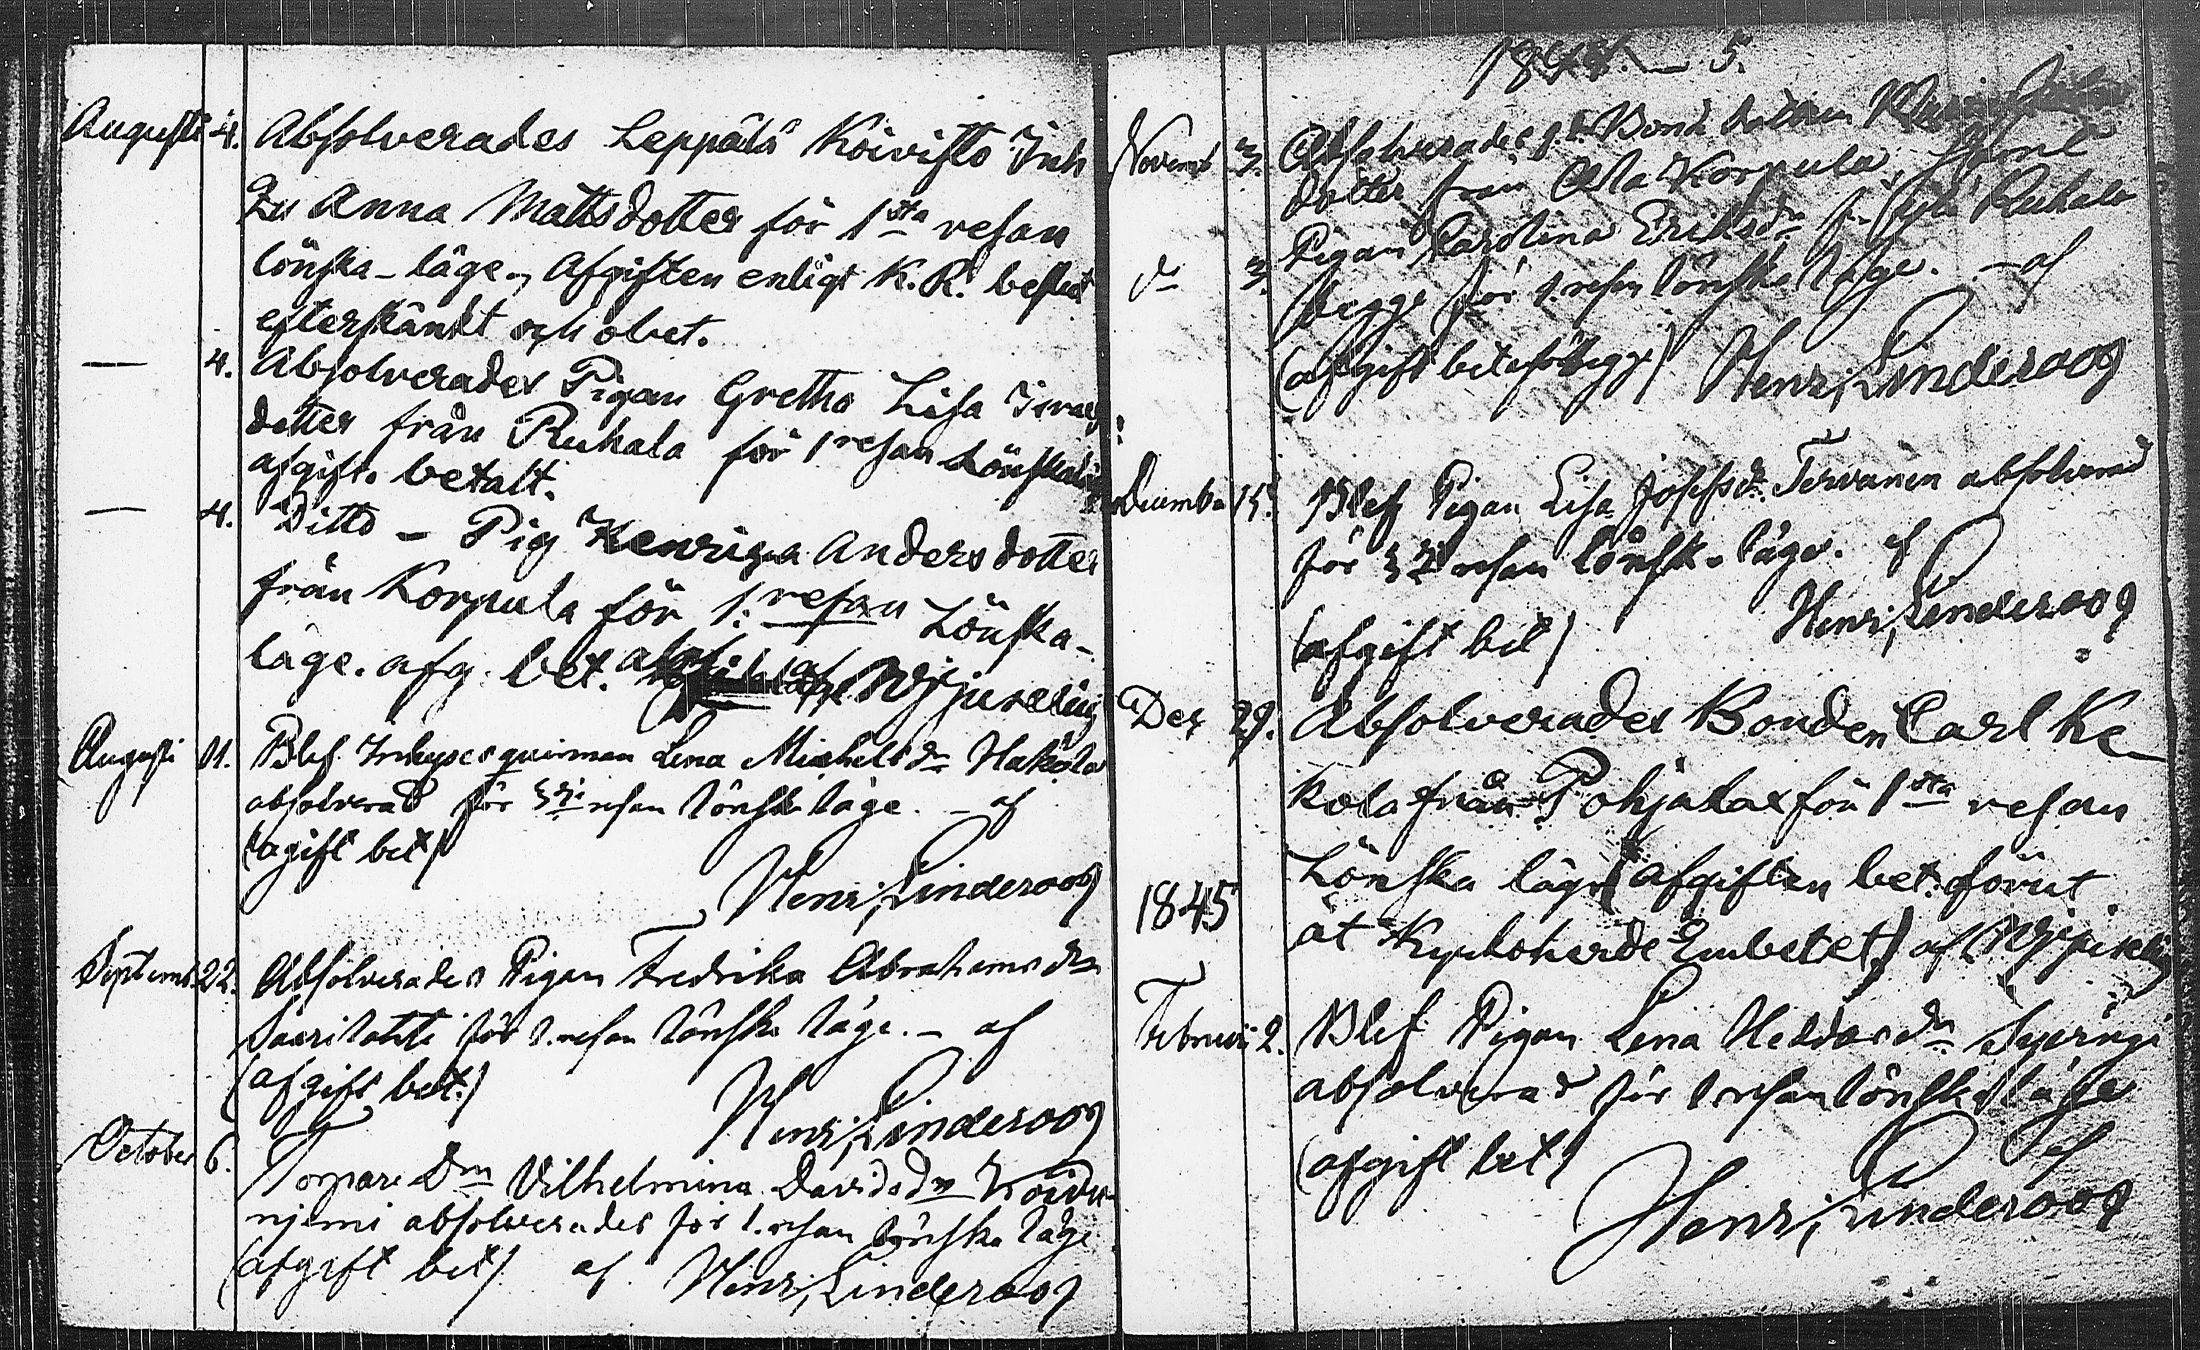 Augusti 4. Absolverades Leppälä Koivisto Inh
Anna Mattsdotter för 1sta resan
lönska-läge, Afgiften enligt K. R. beslut
efterskänkt och obet.
— 4. Absolverades Pigan Gretha Lisa Israels
dotter från Ruhala för 1 resan Lönskaläge
afgift. betalt.
— 4. Ditto - Pig Henrica Andersdotter
från Korpula för 1. resan Lönska-
läge. afg. bet. af
Augusti 11. Blef Inhyses qvinnan Lena Michelsdr Hakola
absolverad för 3dje resan lönska läge. - af
(agift bet)
Henr. Linderoos
Septemb. 22. Absolverades Pigan Fredrika Abrahamsdr
för 1. resan lönska läge. - af
(afgift bet.)
Henr. Linderoos
October 6. Torpare Dn Vilhelmina Davidsdr Koivu
njemi absolverades för 1. resan lönska läge
(afgift bet) af Henr. Linderoos
1844. — 5.
Novemb 3. Absolverades Bonde
dotter från Ala Korpula, samt
do 3. Pigan Carolina Eriksdr från Ruhala
begge för 1. resan lönska läge. - af
(afgift bet af begge) Henr. Linderoos
Decemb. 15. Blef Pigan Lisa Josefsdr Tervanen absolverad
för resan lönsk. läge. af
(afgift bet) Henr. Linderoos
Dec 29. Absolverades Bonden Carl Ke-
kola från Pohjalax för 1sta resan
Lönska läge (afgiften bet. förut
1845
åt Kyrkoherde Embetet) af
Februari 2. Blef Pigan Lena Heddasdr Syeringi
absolverad för 1 resan lönska läge
(afgift bet) af
Henr. Linderoos